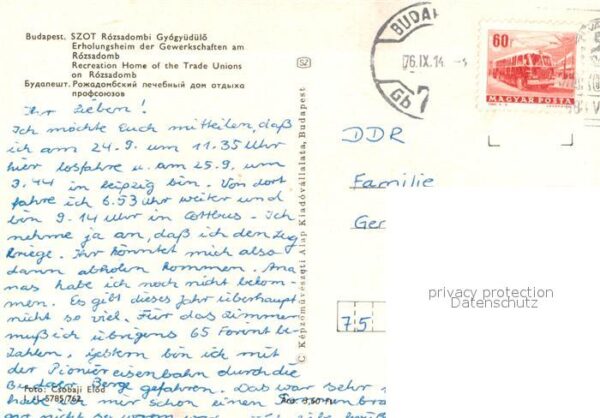 Budapest. SZOT Rózsadombi Gyógyüdülő
Erholungsheim der Gewerkschaften am
Rózsadomb
Recreation Home of the Trade Unions
on Rózsadomb
Будапешт. Рожадомбский лечебный дом отдыха
профсоюзов
Ihr Lieben!
Ich möchte Euch mitteilen, daß
ich am 24.9. um 11.35 Uhr
hier losfahre u. am 25.9. um
in Leipzig bin. Von dort
fahre ich 6.53 Uhr weiter und
bin 9.14 Uhr in Cottbus. Ich
nehme ja an, daß ich den Zug
kriege. Ihr könntet mich also
dann abholen kommen. Ana
nas habe ich noch nicht bekom-
men. Es gibt dieses Jahr überhaupt
nicht so viel. Für das Zimmer
muß ich übrigens 65 Forint be-
zahlen. Gestern bin ich mit
der Pioniereisenbahn durch die
Budaer Berge gefahren. Das war sehr
habe ich mir schon einen
gar nicht so warm war
Foto: Csobaji Előd
C Képzőművészeti Alap Kiadóvállalata, Budapest
SZ
BUDAP
76.IX.14.
Gb 7
60f
MAGYAR POSTA
DDR
Familie
Ger
75
privacy protection
Datenschutz